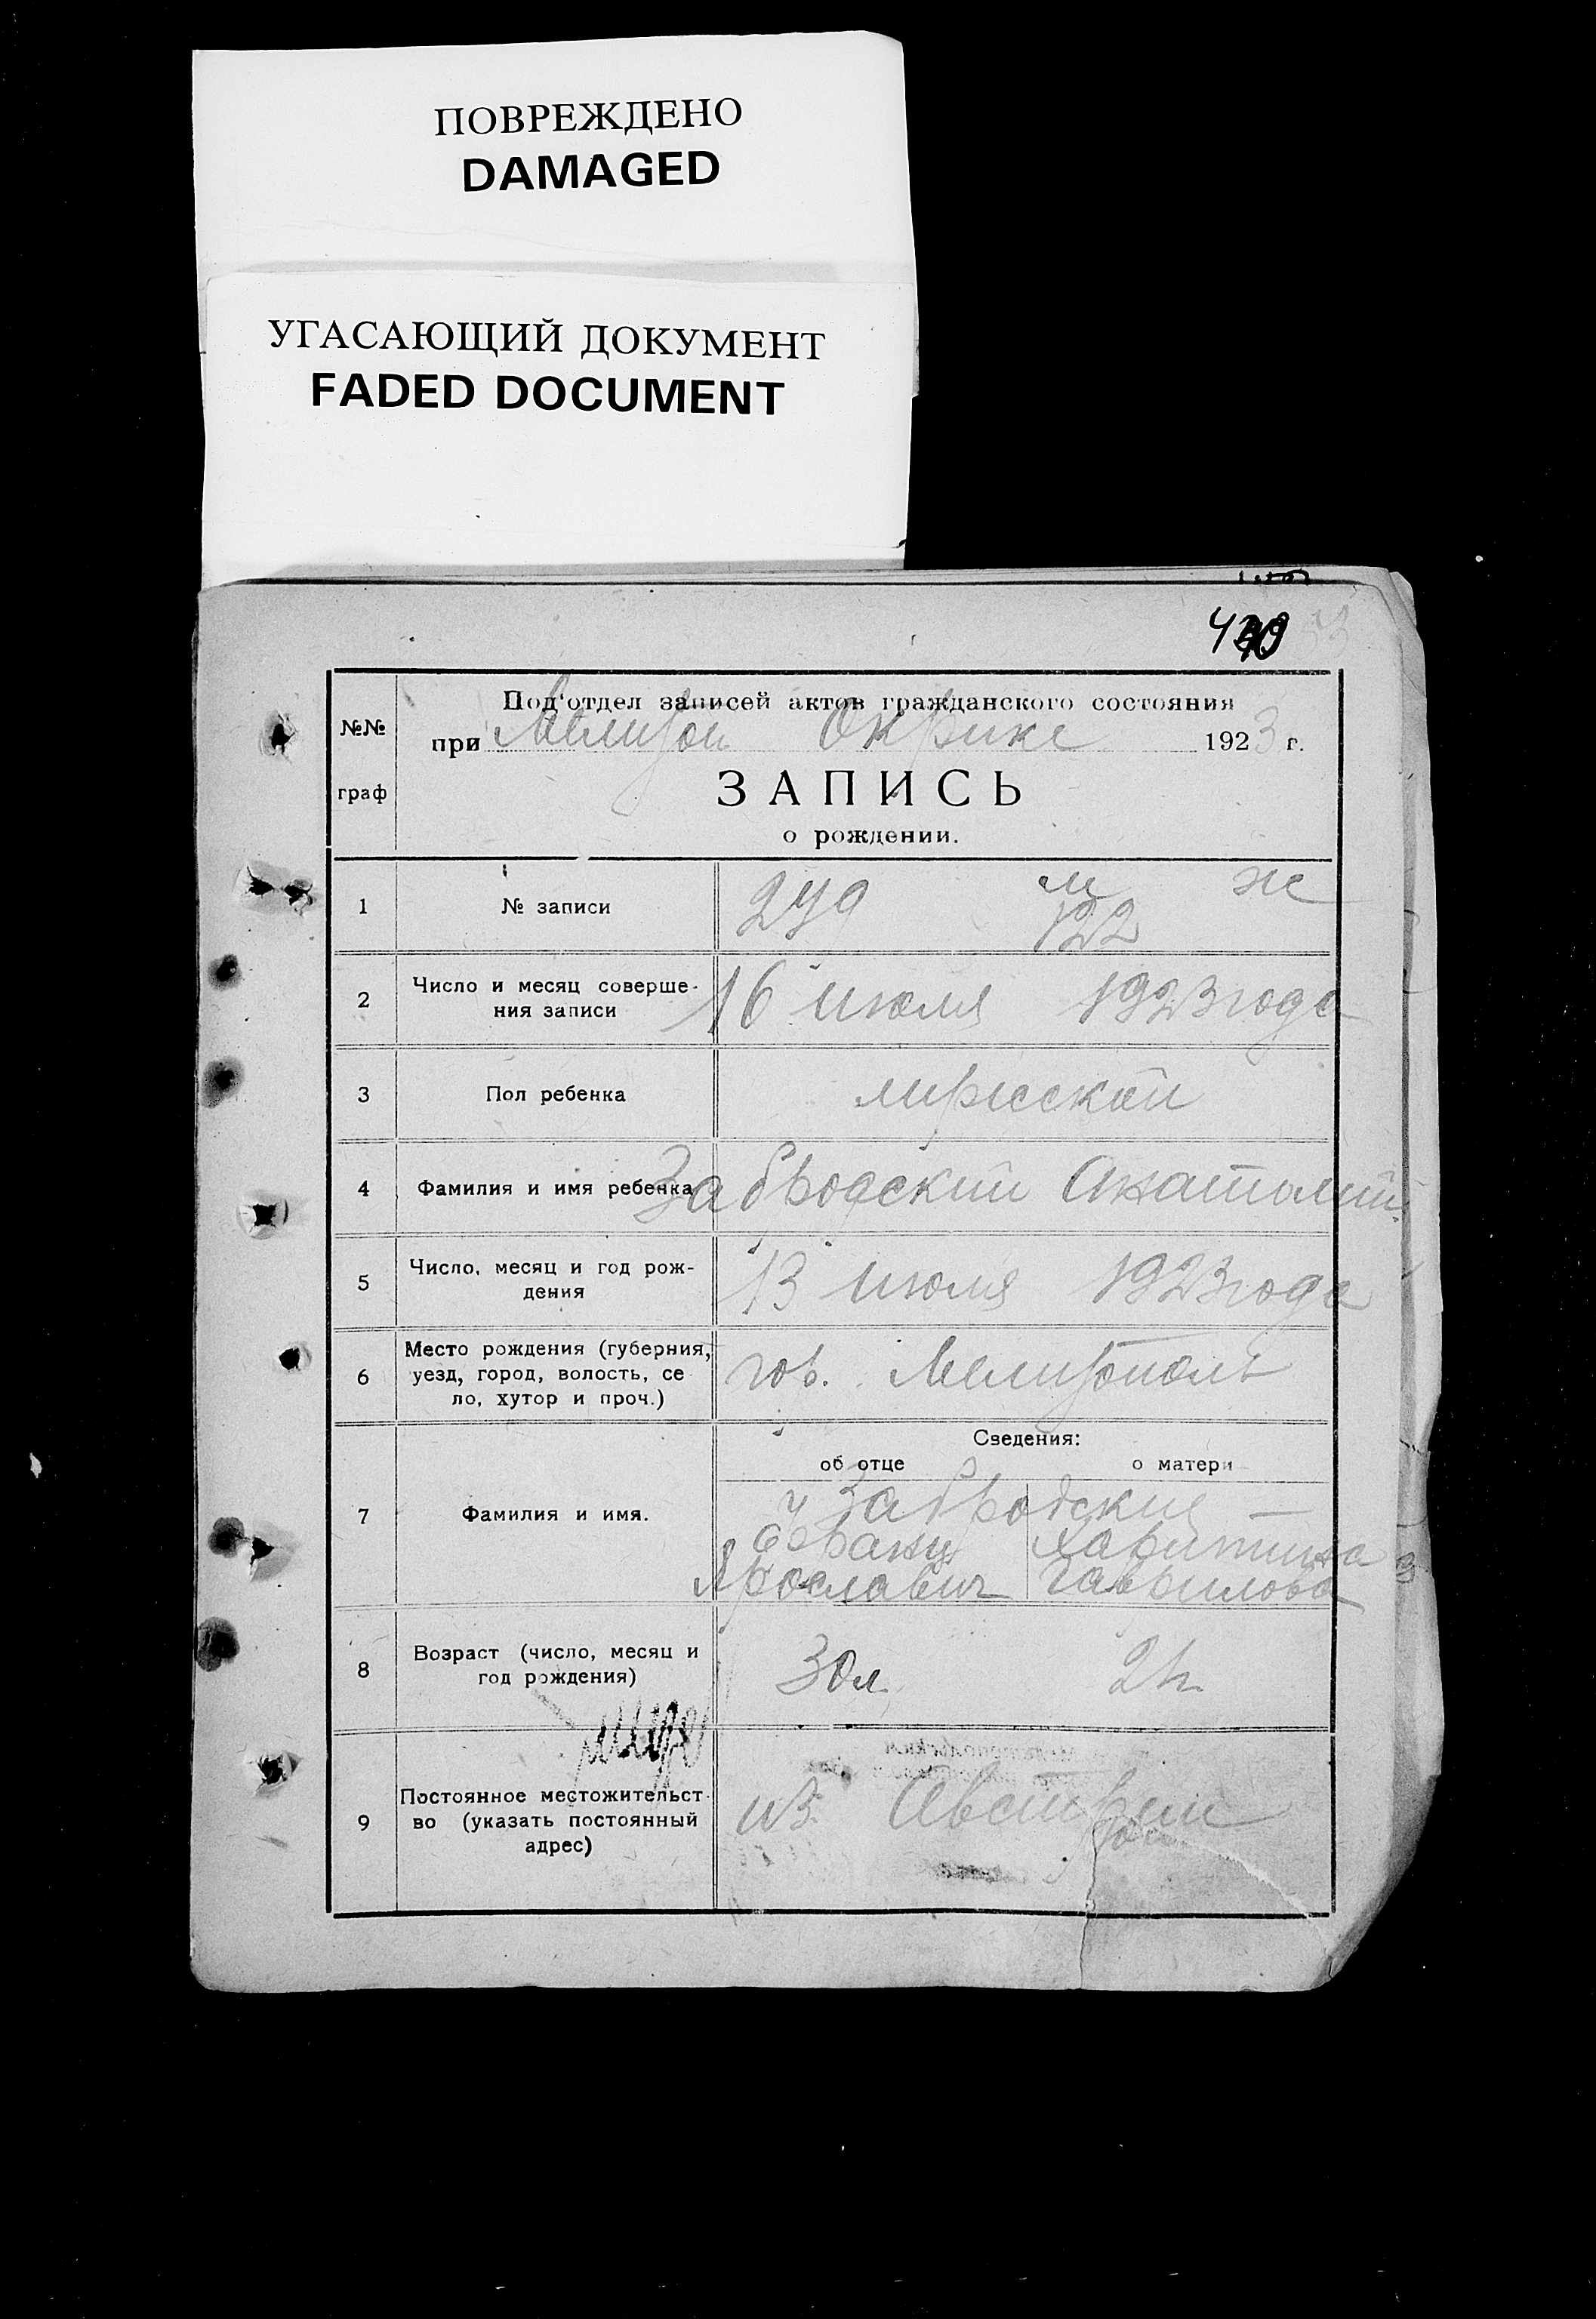 ПОВРЕЖДЕНО
DAMAGED
УГАСАЮЩИЙ ДОКУМЕНТ
FADED DOCUMENT
№№
граф
Под'отдел записей актов гражданского состояния
при Мелитоп Окрике 1923 г.
ЗАПИСЬ
о рождении.
1 № записи 279 м ж
122
2 Число и месяц соверше-
ния записи 16 июля 1923 года
3 Пол ребенка мужской
4 Фамилия и имя ребенка Забродский Анатолий
5 Число, месяц и год рож-
дения 13 июля 1923 года
6 Место рождения (губерния,
уезд, город, волость, се
ло, хутор и проч.) гор. Мелитополь
Сведения:
об отце о матери
7 Фамилия и имя. Забродские
Франц Харитина
Ярославич Гавриловна
8 Возраст (число, месяц и
год рождения) 30 л.
9 Постоянное местожительст-
во (указать постоянный
адрес) из Австрии